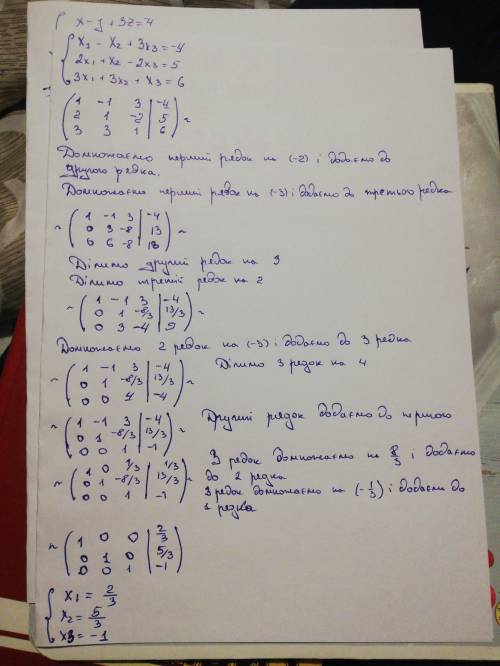 { x - y + 3z = 4
{ x₁ - x₂ + 3x₃ = -4
2x₁ + x₂ - 2x₃ = 5
3x₁ + 3x₂ + x₃ = 6
( 1 -1 3 | -4
2 1 -2 | 5
3 3 1 | 6 ) ~
Домножаємо перший рядок на (-2) і додаємо до
другого рядка.
Домножаємо перший рядок на (-3) і додаємо до третього рядка
~ ( 1 -1 3 | -4
0 3 -8 | 13
0 6 -8 | 18 ) ~
Ділимо другий рядок на 3
Ділимо третій рядок на 2
~ ( 1 -1 3 | -4
0 1 -8/3 | 13/3
0 3 -4 | 9 ) ~
Домножаємо 2 рядок на (-3) і додаємо до 3 рядка
~ ( 1 -1 3 | -4
0 1 -8/3 | 13/3
0 0 4 | -4 ) ~
Ділимо 3 рядок на 4
~ ( 1 -1 3 | -4
0 1 -8/3 | 13/3
0 0 1 | -1 ) ~
Другий рядок додаємо до першого
~ ( 1 0 1/3 | 1/3
0 1 -8/3 | 13/3
0 0 1 | -1 ) ~
3 рядок домножаємо на 8/3 і додаємо
до 2 рядка
3 рядок домножаємо на (-1/3) і додаємо до
1 рядка
~ ( 1 0 0 | 2/3
0 1 0 | 5/3
0 0 1 | -1 )
{ x₁ = 2/3
x₂ = 5/3
x3 = -1